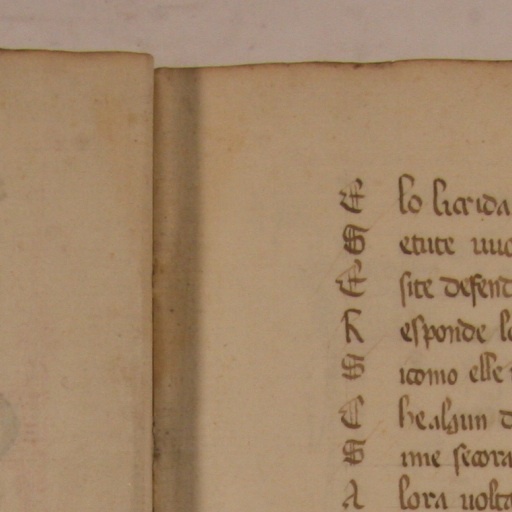 E lo li crida
S etute
E site defend
R esponde lo
S icomo elle
C he algun d
S ime secora
A lora volta